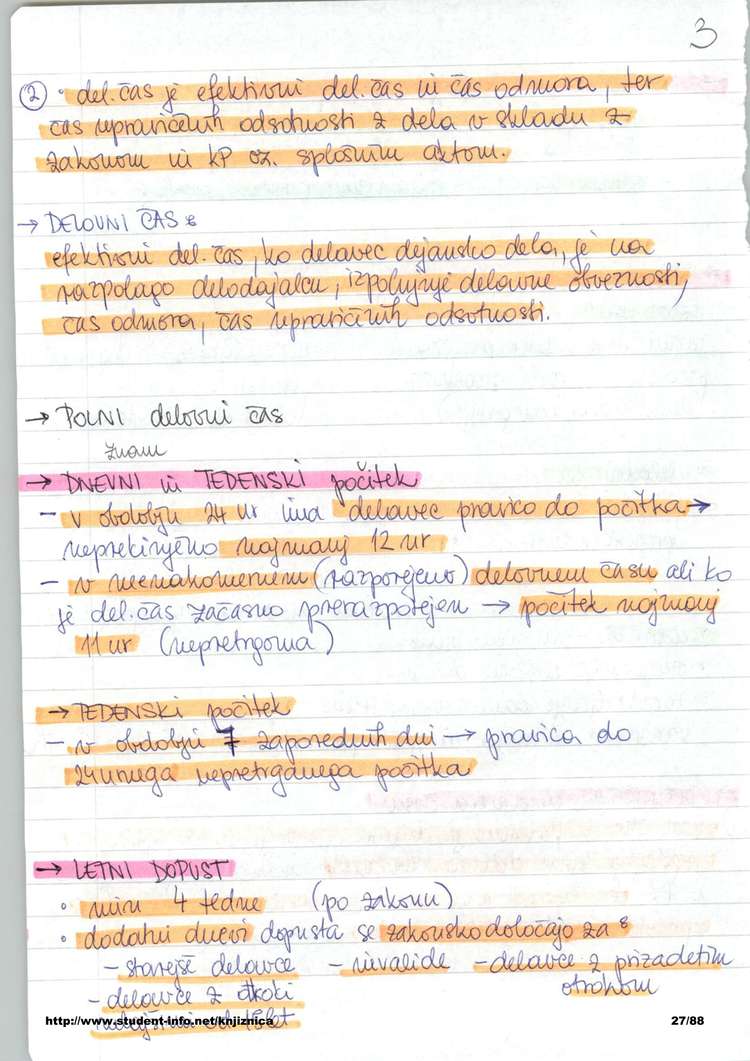 3
② • del. čas je efektivni del. čas in čas odmora, ter
čas upravičenih odsotnosti z dela v skladu z
zakonom in KP oz. splošnim aktom.
→ DELOVNI ČAS :
efektivni del. čas, ko delavec dejansko dela, je na
razpolago delodajalcu, izpolnjuje delovne obveznosti,
čas odmora, čas upravičenih odsotnosti.
→ POLNI delovni čas
znam
→ DNEVNI in TEDENSKI počitek
– v obdobju 24 ur ima delavec pravico do počitka →
neprekinjeno najmanj 12 ur
– v neenakomernem (razporejeno) delovnem času ali ko
je del. čas začasno prerazporejen → počitek najmanj
11 ur (nepretrgoma)
→ TEDENSKI počitek
– v obdobju 7 zaporednih dni → pravica do
24 urnega nepretrganega počitka
→ LETNI DOPUST
• min 4 tedne (po zakonu)
• dodatni dnevi dopusta se zakonsko določajo za :
– starejše delavce – invalide – delavce z prizadetim
– delavce z otroki otrokom
mlajšimi od 15 let
http://www.student-info.net/knjiznica 27/88